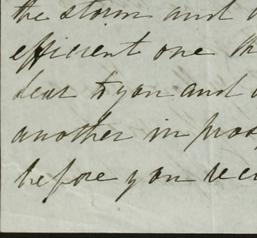 the storm and
efficient one th
dear to you and
another in pros
before you rec